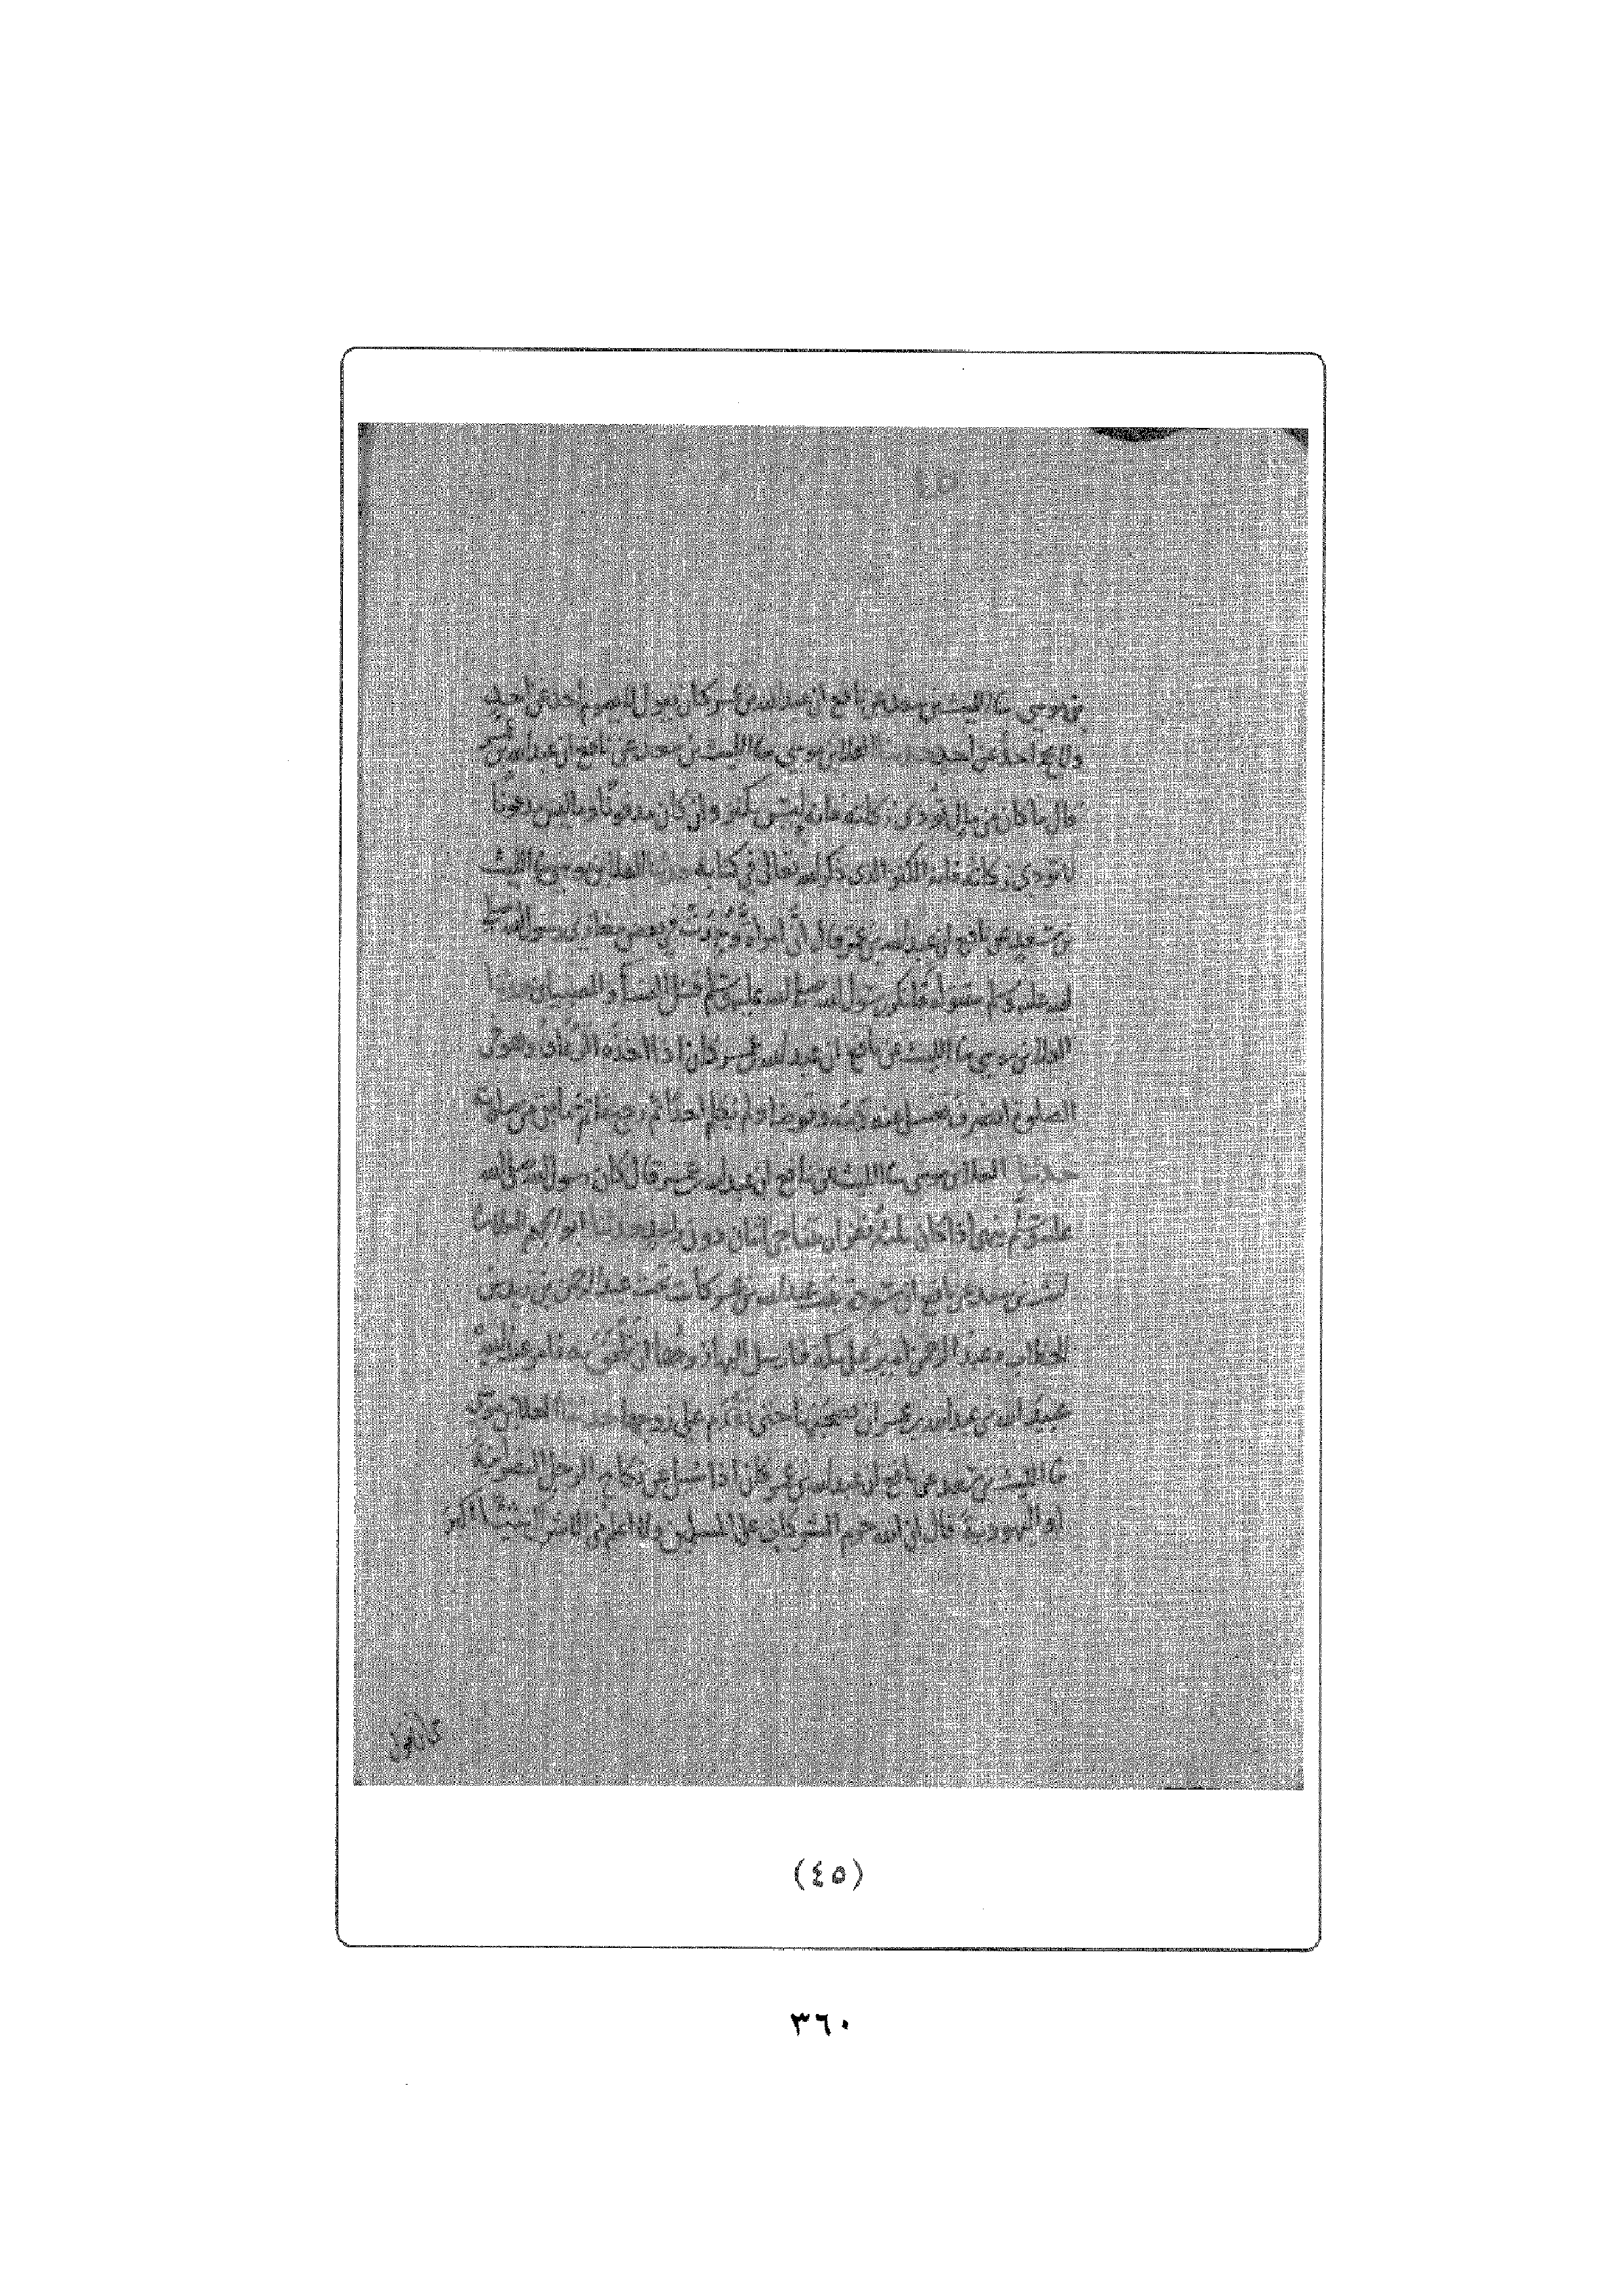 ٤٥
بن موسى نا الليث بن سعد عن نافع ان عبد الله بن عمر كان يقول لا يصوم احد عن احد
ولا يحج احد عن احد حدثنا العلا بن موسى نا الليث بن سعد عن نافع ان عبد الله بن عمر
قال ما كان من مال تؤدى زكاته فانه ليس بكنز وان كان مدفونا وما ليس مدفونا
لا تؤدى زكاته فانه الكنز الذى ذكر الله تعالى في كتابه حدثنا العلا بن موسى نا الليث
بن سعد عن نافع ان عبد الله بن عمر قال ان امراة وجدت في بعض مغازى رسول الله صلى
الله عليه وسلم مقتولة فانكر رسول الله صلى الله عليه وسلم قتل النسا والصبيان حدثنا
العلا بن موسى نا الليث عن نافع ان عبد الله بن عمر كان اذا اخذه الرعاف وهو في
الصلوة انصرف فغسل عنه الدم وتوضا ولم يتكلم احدا ثم رجع فاتم ما بقى من صلاته
حدثنا العلا بن موسى نا الليث عن نافع ان عبد الله بن عمر قال كان رسول الله صلى الله
عليه وسلم ينهى اذا كان ثلثة نفر ان يتناجى اثنان دون واحد حدثنا ابو الجهم العلا نا
ليث بن سعد عن نافع ان سودة بنت عبد الله بن عمر كانت تحت عبد الرحمن بن زيد بن
الخطاب وعبد الرحمن امير على مكة فارسل اليها زوجها ان
عبيد الله بن عبد الله بن عمر ان يصحبها حتى تقدم على زوجها حدثنا العلا بن موسى
نا الليث بن سعد عن نافع ان عبد الله بن عمر كان اذا سئل عن نكاح الرجل النصرانية
او اليهودية قال ان الله حرم المشركات على المسلمين ولا اعلم من الاشراك شيئا اكبر
من ان تقول
(٤٥)
٣٦٠